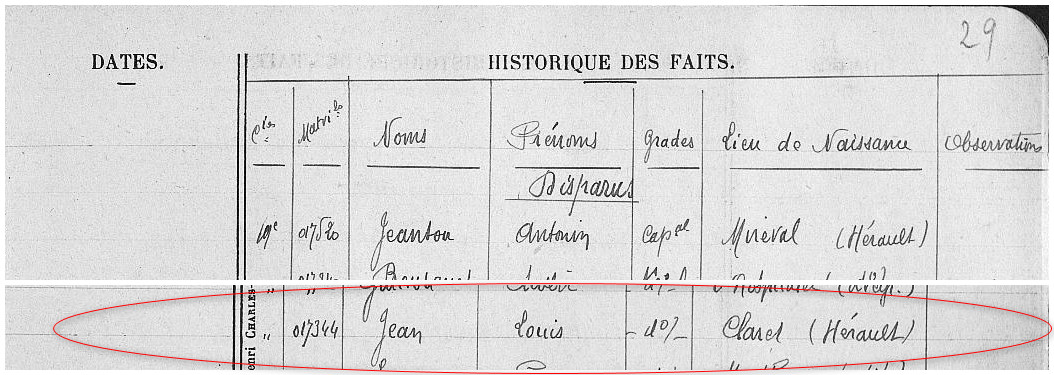 29
DATES. HISTORIQUE DES FAITS.
Cies Matricle Noms Prénoms Grades Lieu de Naissance Observations
Disparus
19e 017520 Jeanton Antonin Capal Mireval (Hérault)
enri CHARLES- „ 017344 Jean Louis - do/- Claret (Hérault)